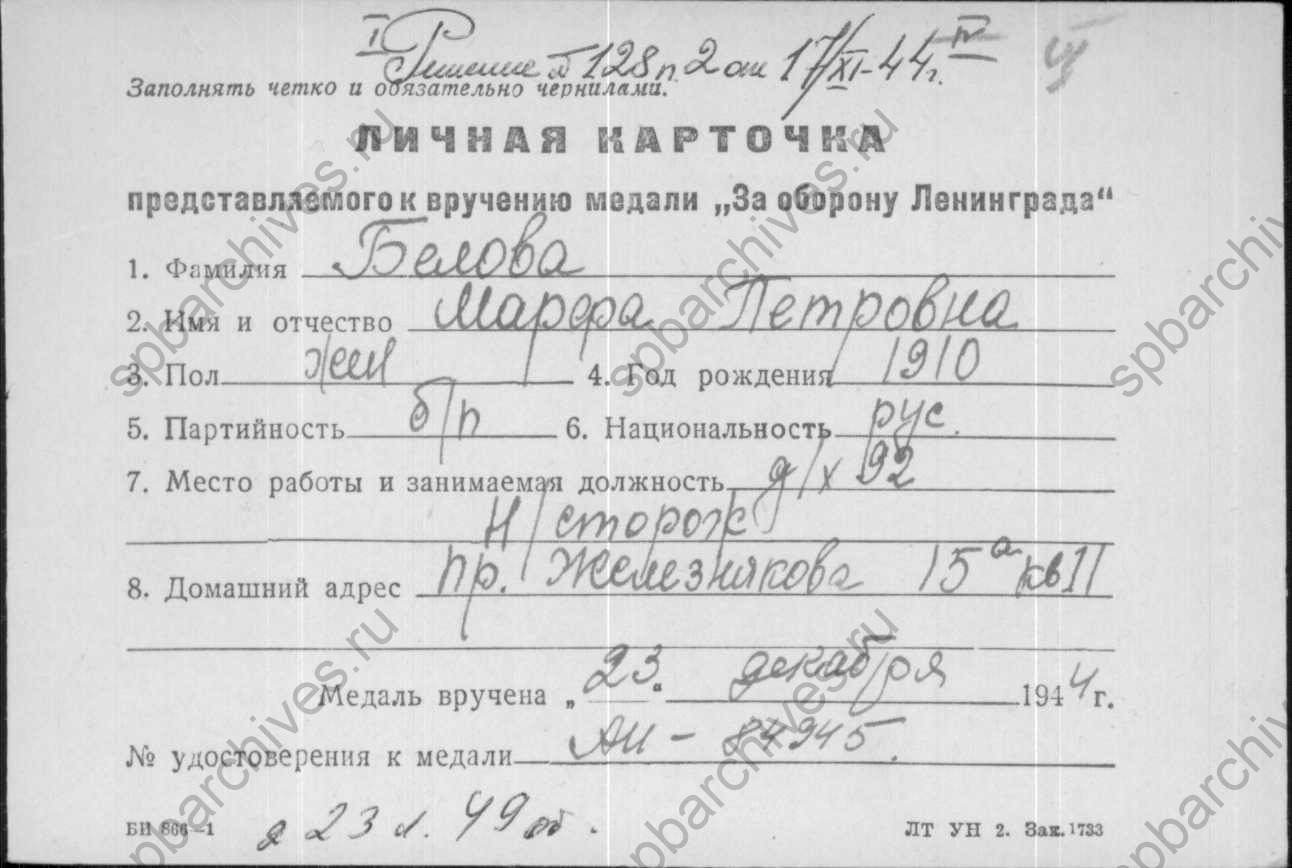 I Решение № 128 п. 2 от 17/XI-44 г. IV
Заполнять четко и обязательно чернилами.
ЛИЧНАЯ КАРТОЧКА
представляемого к вручению медали „За оборону Ленинграда“
1. Фамилия Белова
2. Имя и отчество Марфа Петровна
3. Пол жен 4. Год рождения 1910
5. Партийность б/п 6. Национальность рус.
7. Место работы и занимаемая должность д/х 92
Н/сторож
8. Домашний адрес пр. Железнякова 15а кв 11
Медаль вручена „23“ декабря 1944 г.
№ удостоверения к медали АИ – 84945.
БИ 866–1 д 23 л. 49 об.
ЛТ УН 2. Зак. 1733
spbarchives.ru